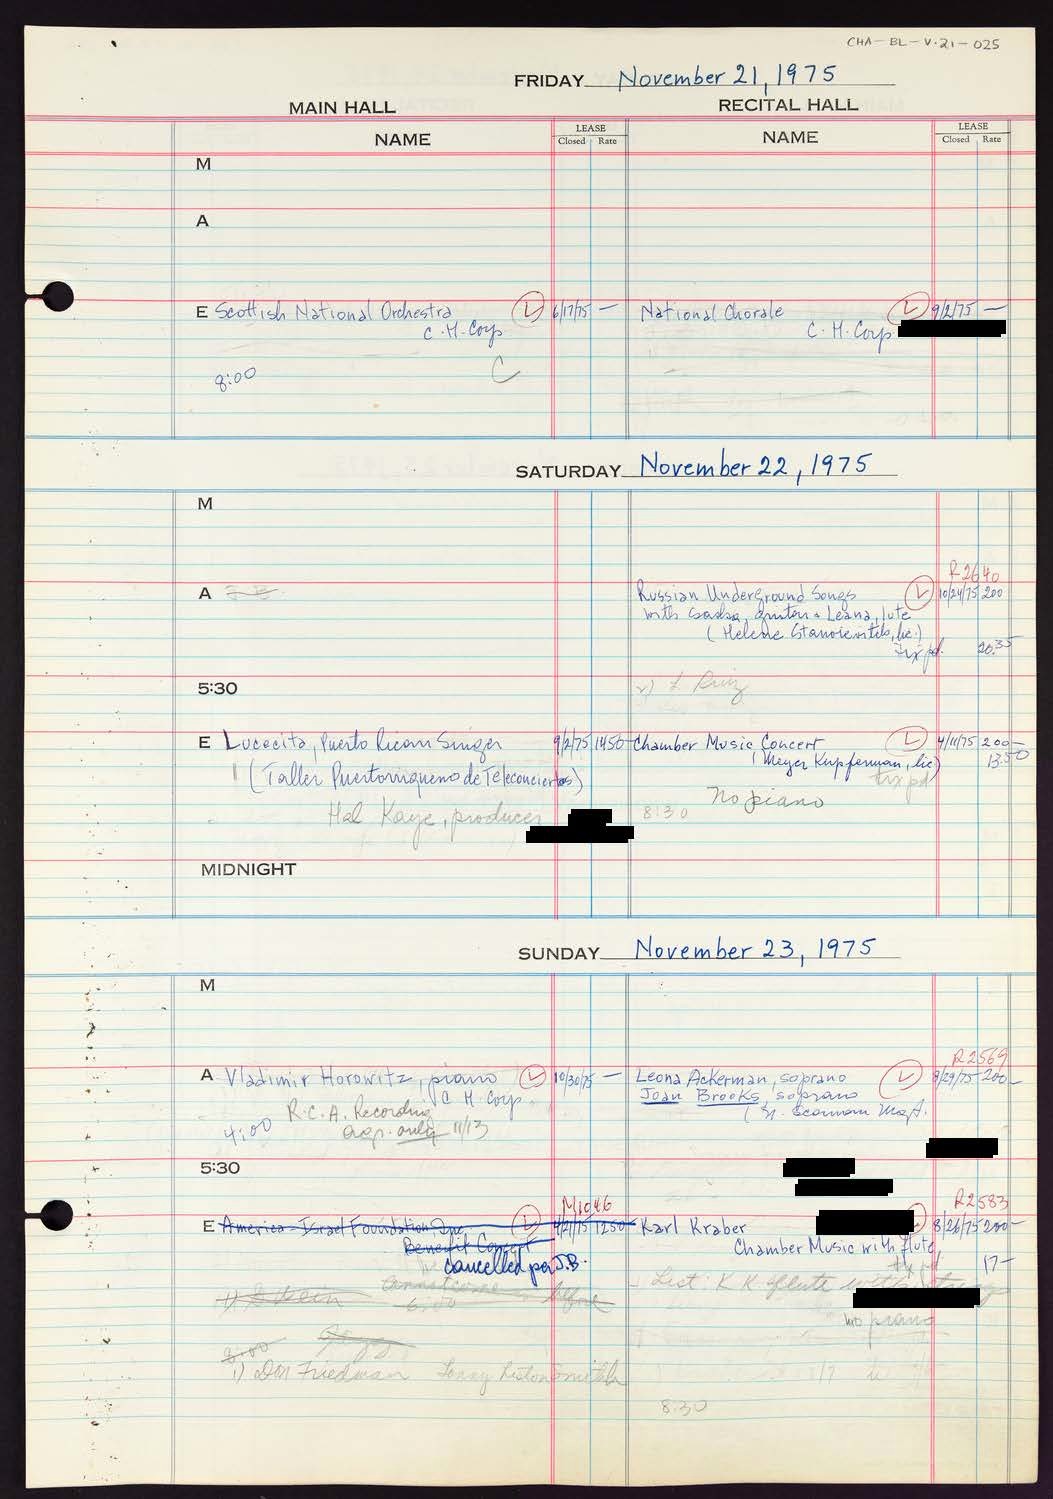 CHA-BL-V.21-025
FRIDAY November 21, 1975
MAIN HALL RECITAL HALL
NAME LEASE Closed Rate NAME LEASE Closed Rate
M
A
E Scottish National Orchestra L 6/17/75 — National Chorale L 9/2/75 —
C.H. Corp C.H. Corp.
8:00 C
SATURDAY November 22, 1975
M
R2640
A Russian Underground Songs L 10/24/75 200
with guitar + Leana, lute
(Helene lic.)
tix pd. 20.35
5:30 2) L Ruiz
E Lucecita, Puerto Rican Singer 9/2/75 1450 Chamber Music Concert L 4/11/75 200—
(Taller Puertorriqueno de Teleconciertos) (Meyer Kupferman, lic) 13.50
tix pd
Hal Kaye, producer 8:30 No piano
MIDNIGHT
SUNDAY November 23, 1975
M
R2569
A Vladimir Horowitz, piano L 10/30/75 — Leona Ackerman, soprano L 8/29/75 200—
C H Corp. Joan Brooks, soprano
R.C.A. Recording (N. Mgt.
4:00 only 11/13
5:30
M1046 R2583
E America-Israel Foundation Inc L 4/21/75 1250— Karl Kraber 8/26/75 200—
Benefit Concert Chamber Music with flute
cancelled per J.B. tx pd 17—
1) S Klein cannot come before List: K K flute with
6:00
no piano
8:00
1) Don Friedman Lonny Liston Smith
8:30